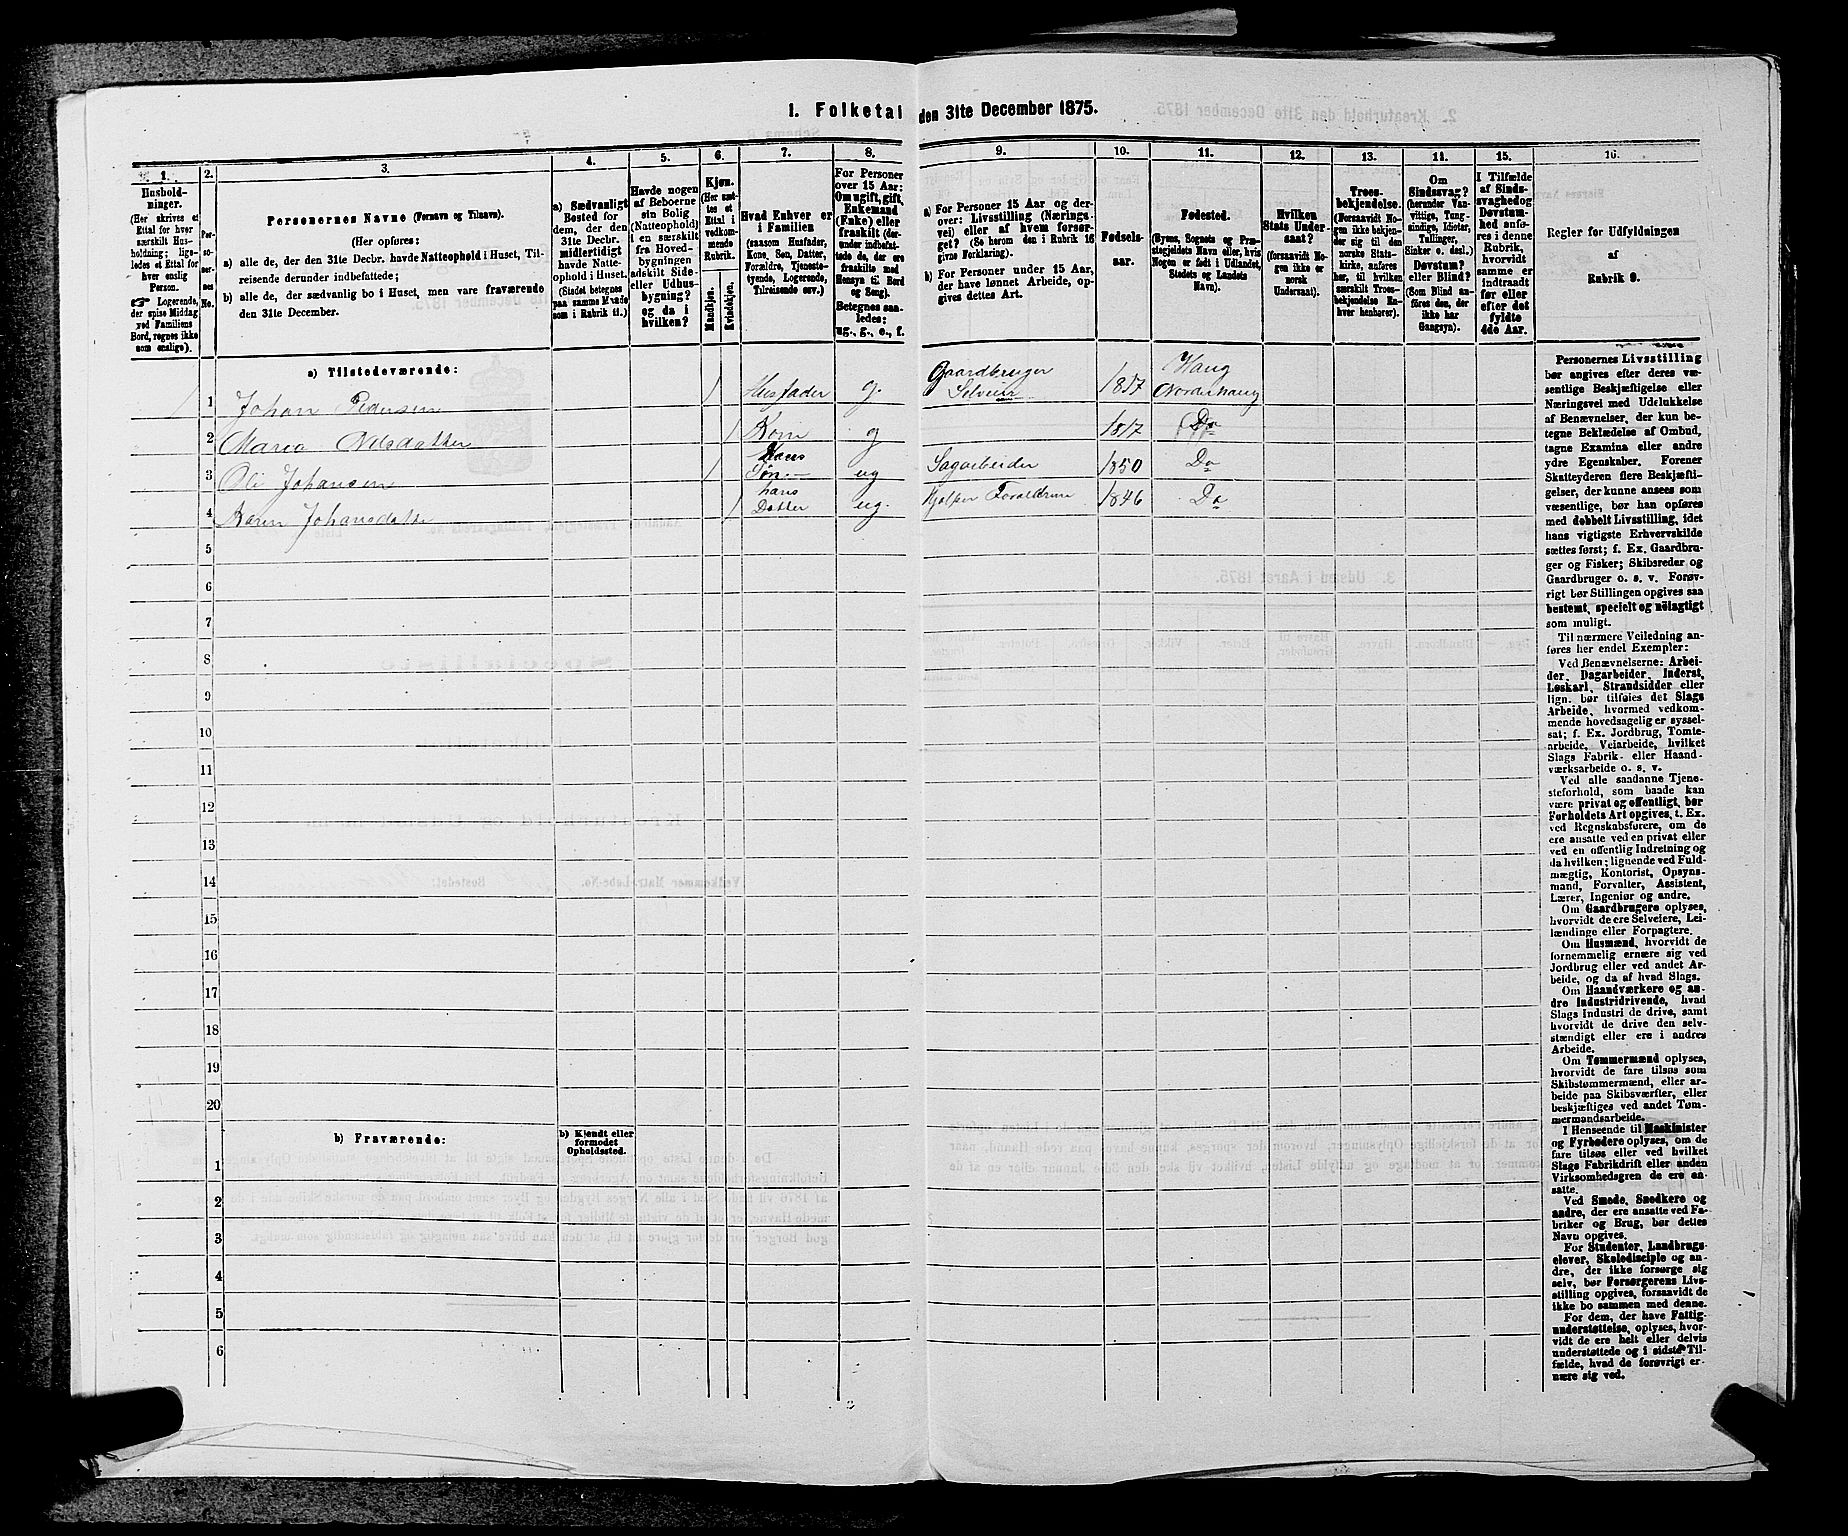 1. Folketal den 31te December 1875.
1.
Hushold-
ninger.
(Her skrives et
Ettal for hver
særskilt Hus-
holdning; lige-
ledes et Ettal for
hver enslig
Person.
☞ Logerende,
der spise Middag
ved Familiens
Bord, regnes ikke
som enslige).
2.
Per-
soner-
nes
No.
3.
Personernes Navne (Fornavn og Tilnavn).
(Her opføres:
a) alle de, der den 31te Decbr. havde Natteophold i Huset, Til-
reisende derunder indbefattede;
b) alle de, der sædvanlig bo i Huset, men vare fraværende
den 31te December.
4.
a) Sædvanligt
Bosted for
dem, der den
31te Decbr.
midlertidigt
havde Natte-
ophold i Huset.
(Stedet betegnes
paa samme Maade
som i Rubrik 11.)
5.
Havde nogen
af Beboerne
sin Bolig
(Natteophold)
i en særskilt
fra Hoved-
bygningen
adskilt Side-
eller Udhus-
bygning?
og da i
hvilken?
6.
Kjøn.
(Her sæt-
tes et
Ettal i
vedkom-
mende
Rubrik.
Mandkjøn.
Kvindekjøn.
7.
Hvad Enhver er
i Familien
(saasom Husfader,
Kone, Søn, Datter,
Forældre, Tjeneste-
tyende, Logerende,
Tilreisende osv.)
8.
For Personer
over 15 Aar:
Om ugift, gift,
Enkemand
(Enke) eller
fraskilt (der-
under indbefat-
tede de, der ere
fraskilte med
Hensyn til Bord
og Seng).
Betegnes saa-
ledes:
ug., g., e., f.
9.
a) For Personer 15 Aar og der-
over: Livsstilling (Nærings-
vei) eller af hvem forsør-
get? (Se herom den i Rubrik 16
givne Forklaring).
b) For Personer under 15 Aar,
der have lønnet Arbeide, op-
gives dettes Art.
10.
Fødsels-
aar.
11.
Fødested.
(Byens, Sognets og Præ-
stegjeldets Navn eller, hvis
Nogen er født i Udlandet,
Stedets og Landets
Navn).
12.
Hvilken
Stats Under-
saat?
(forsaavidt No-
gen ikke er
norsk
Undersaat).
13.
Troes-
bekjendelse.
(Forsaavidt No-
gen ikke bekjen-
der sig til den
norske Stats-
kirke, anføres
her, til hvilken
særskilt Troes-
bekjendelse En-
hver henhører).
14.
Om
Sindssvag?
(herunder Van-
vittige, Tung-
sindige, Idioter,
Tullinger,
Sinker o. desl.)
Døvstum?
eller Blind?
(Som Blind an-
føres den, der
ikke har
Gangsyn).
15.
I Tilfælde
af Sinds-
svaghed og
Døvstum-
hed anfø-
res i denne
Rubrik,
hvorvidt
samme er
indtraadt
før eller
efter det
fyldte
4de Aar.
16.
Regler for Udfyldningen
af
Rubrik 9.
a) Tilstedeværende:
1 Johan Pedersen 1 Husfader g. Gaardbruger Selveier 1817 Haug Norderhaug
2 Maria Nilsdatter 1 Kone g 1817 Do
3 Ole Johansen 1 Hans Søn ug Sagarbeider 1850 Do
4 Karen Johansdatter 1 hans Datter ug. Hjelper Forældrene 1846 Do
5
6
7
8
9
10
11
12
13
14
15
16
17
18
19
20
b) Fraværende:
b) Kjendt eller
formodet
Opholdssted.
1
2
3
4
5
6
Personernes Livsstilling
bør angives efter deres væ-
sentlige Beskjæftigelse eller
Næringsvei med Udelukkelse
af Benævnelser, der kun be-
tegne Beklædelse af Ombud,
tagne Examina eller andre
ydre Egenskaber. Forener
Skatteyderen flere Beskjæfti-
gelser, der kunne ansees som
væsentlige, bør han opføres
med dobbelt Livsstilling, idet
hans vigtigste Erhvervskilde
sættes først; f. Ex. Gaardbru-
ger og Fisker; Skibsreder og
Gaardbruger o. s. v. Forøv-
rigt bør Stillingen opgives saa
bestemt, specielt og nøiagtigt
som muligt.
Til nærmere Veiledning an-
føres her endel Exempler:
Ved Benævnelserne: Arbei-
der, Dagarbeider, Inderst,
Løskarl, Strandsidder eller
lign. bør tilføies det Slags
Arbeide, hvormed vedkom-
mende hovedsagelig er syssel-
sat; f. Ex. Jordbrug, Tomte-
arbeide, Veiarbeide, hvilket
Slags Fabrik- eller Haand-
værksarbeide o. s. v.
Ved alle saadanne Tjene-
steforhold, som baade kan
være privat og offentligt, bør
Forholdets Art opgives, t. Ex.
ved Regnskabsførere, om de
ere ansatte ved en privat eller
ved en offentlig Indretning og
da hvilken; lignende ved Fuld-
mægtig, Kontorist, Opsyns-
mand, Forvalter, Assistent,
Lærer, Ingeniør og andre.
Om Gaardbrugere oplyses,
hvorvidt de ere Selveiere, Lei-
lændinge eller Forpagtere.
Om Husmænd, hvorvidt de
fornemmelig ernære sig ved
Jordbrug eller ved andet Ar-
beide, og da af hvad Slags.
Om Haandværkere og an-
dre Industridrivende, hvad
Slags Industri de drive, samt
hvorvidt de drive den selv-
stændigt eller ere i andres
Arbeide.
Om Tømmermænd oplyses,
hvorvidt de fare tilsøs som
Skibstømmermænd, eller ar-
beide paa Skibsværfter, eller
beskjæftiges ved andet Tøm-
mermandsarbeide.
I Henseende til Maskinister
og Fyrbødere oplyses, om de
fare tilsøs eller ved hvilket
Slags Fabrikdrift eller anden
Virksomhedsgren de ere an-
satte.
Ved Smede, Snedkere og
andre, der ere ansatte ved Fa-
briker og Brug, bør dettes
Navn opgives.
For Studenter, Landbrugs-
elever, Skoledisciple og an-
dre, der ikke forsørge sig
selv, bør Forsørgerens Livs-
stilling opgives, forsaavidt de
ikke bo sammen med denne.
For dem, der have Fattig-
understøttelse, oplyses, hvor-
vidt de ere helt eller delvis
understøttede og i sidste Til-
fælde, hvad de forøvrigt er-
nære sig ved.